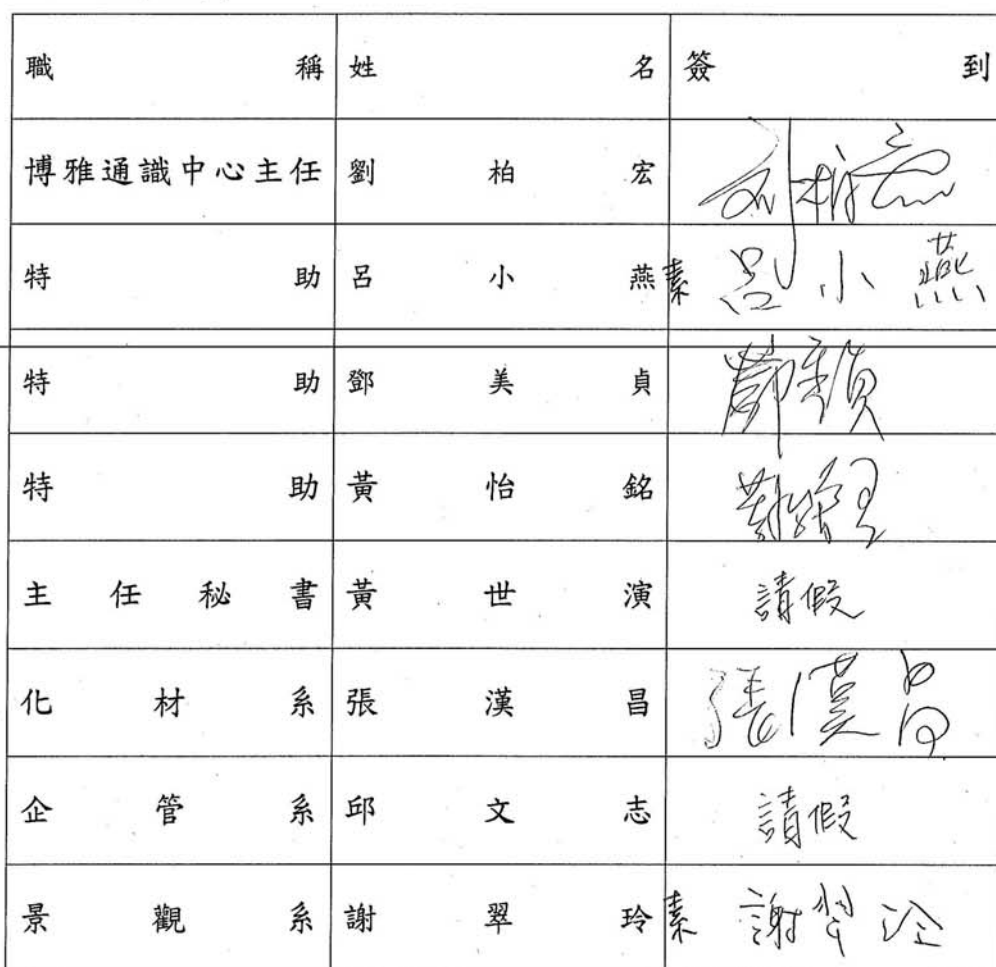 職稱 姓名 簽到
博雅通識中心主任 劉柏宏 刘柏宏
特助 呂小燕 素 呂小燕
特助 鄧美貞
特助 黃怡銘
主任秘書 黃世演 請假
化材系 張漢昌 張漢昌
企管系 邱文志 請假
景觀系 謝翠玲 素 謝翠玲